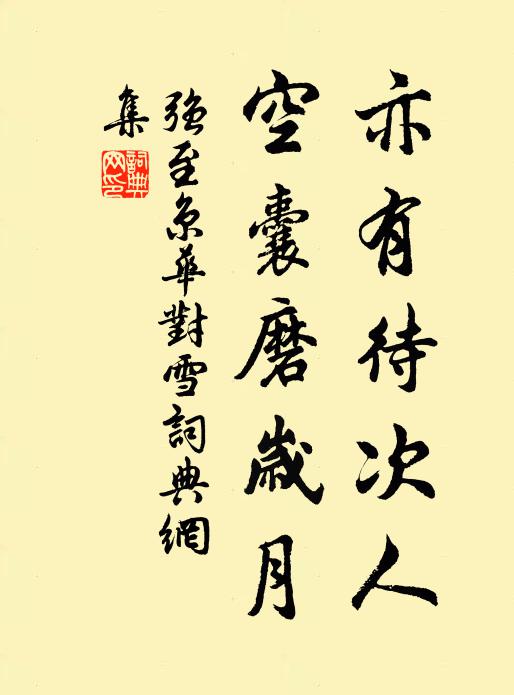 亦有待次人
空囊磨歲月
強至京華對雪詞典網
集
詞典
網印